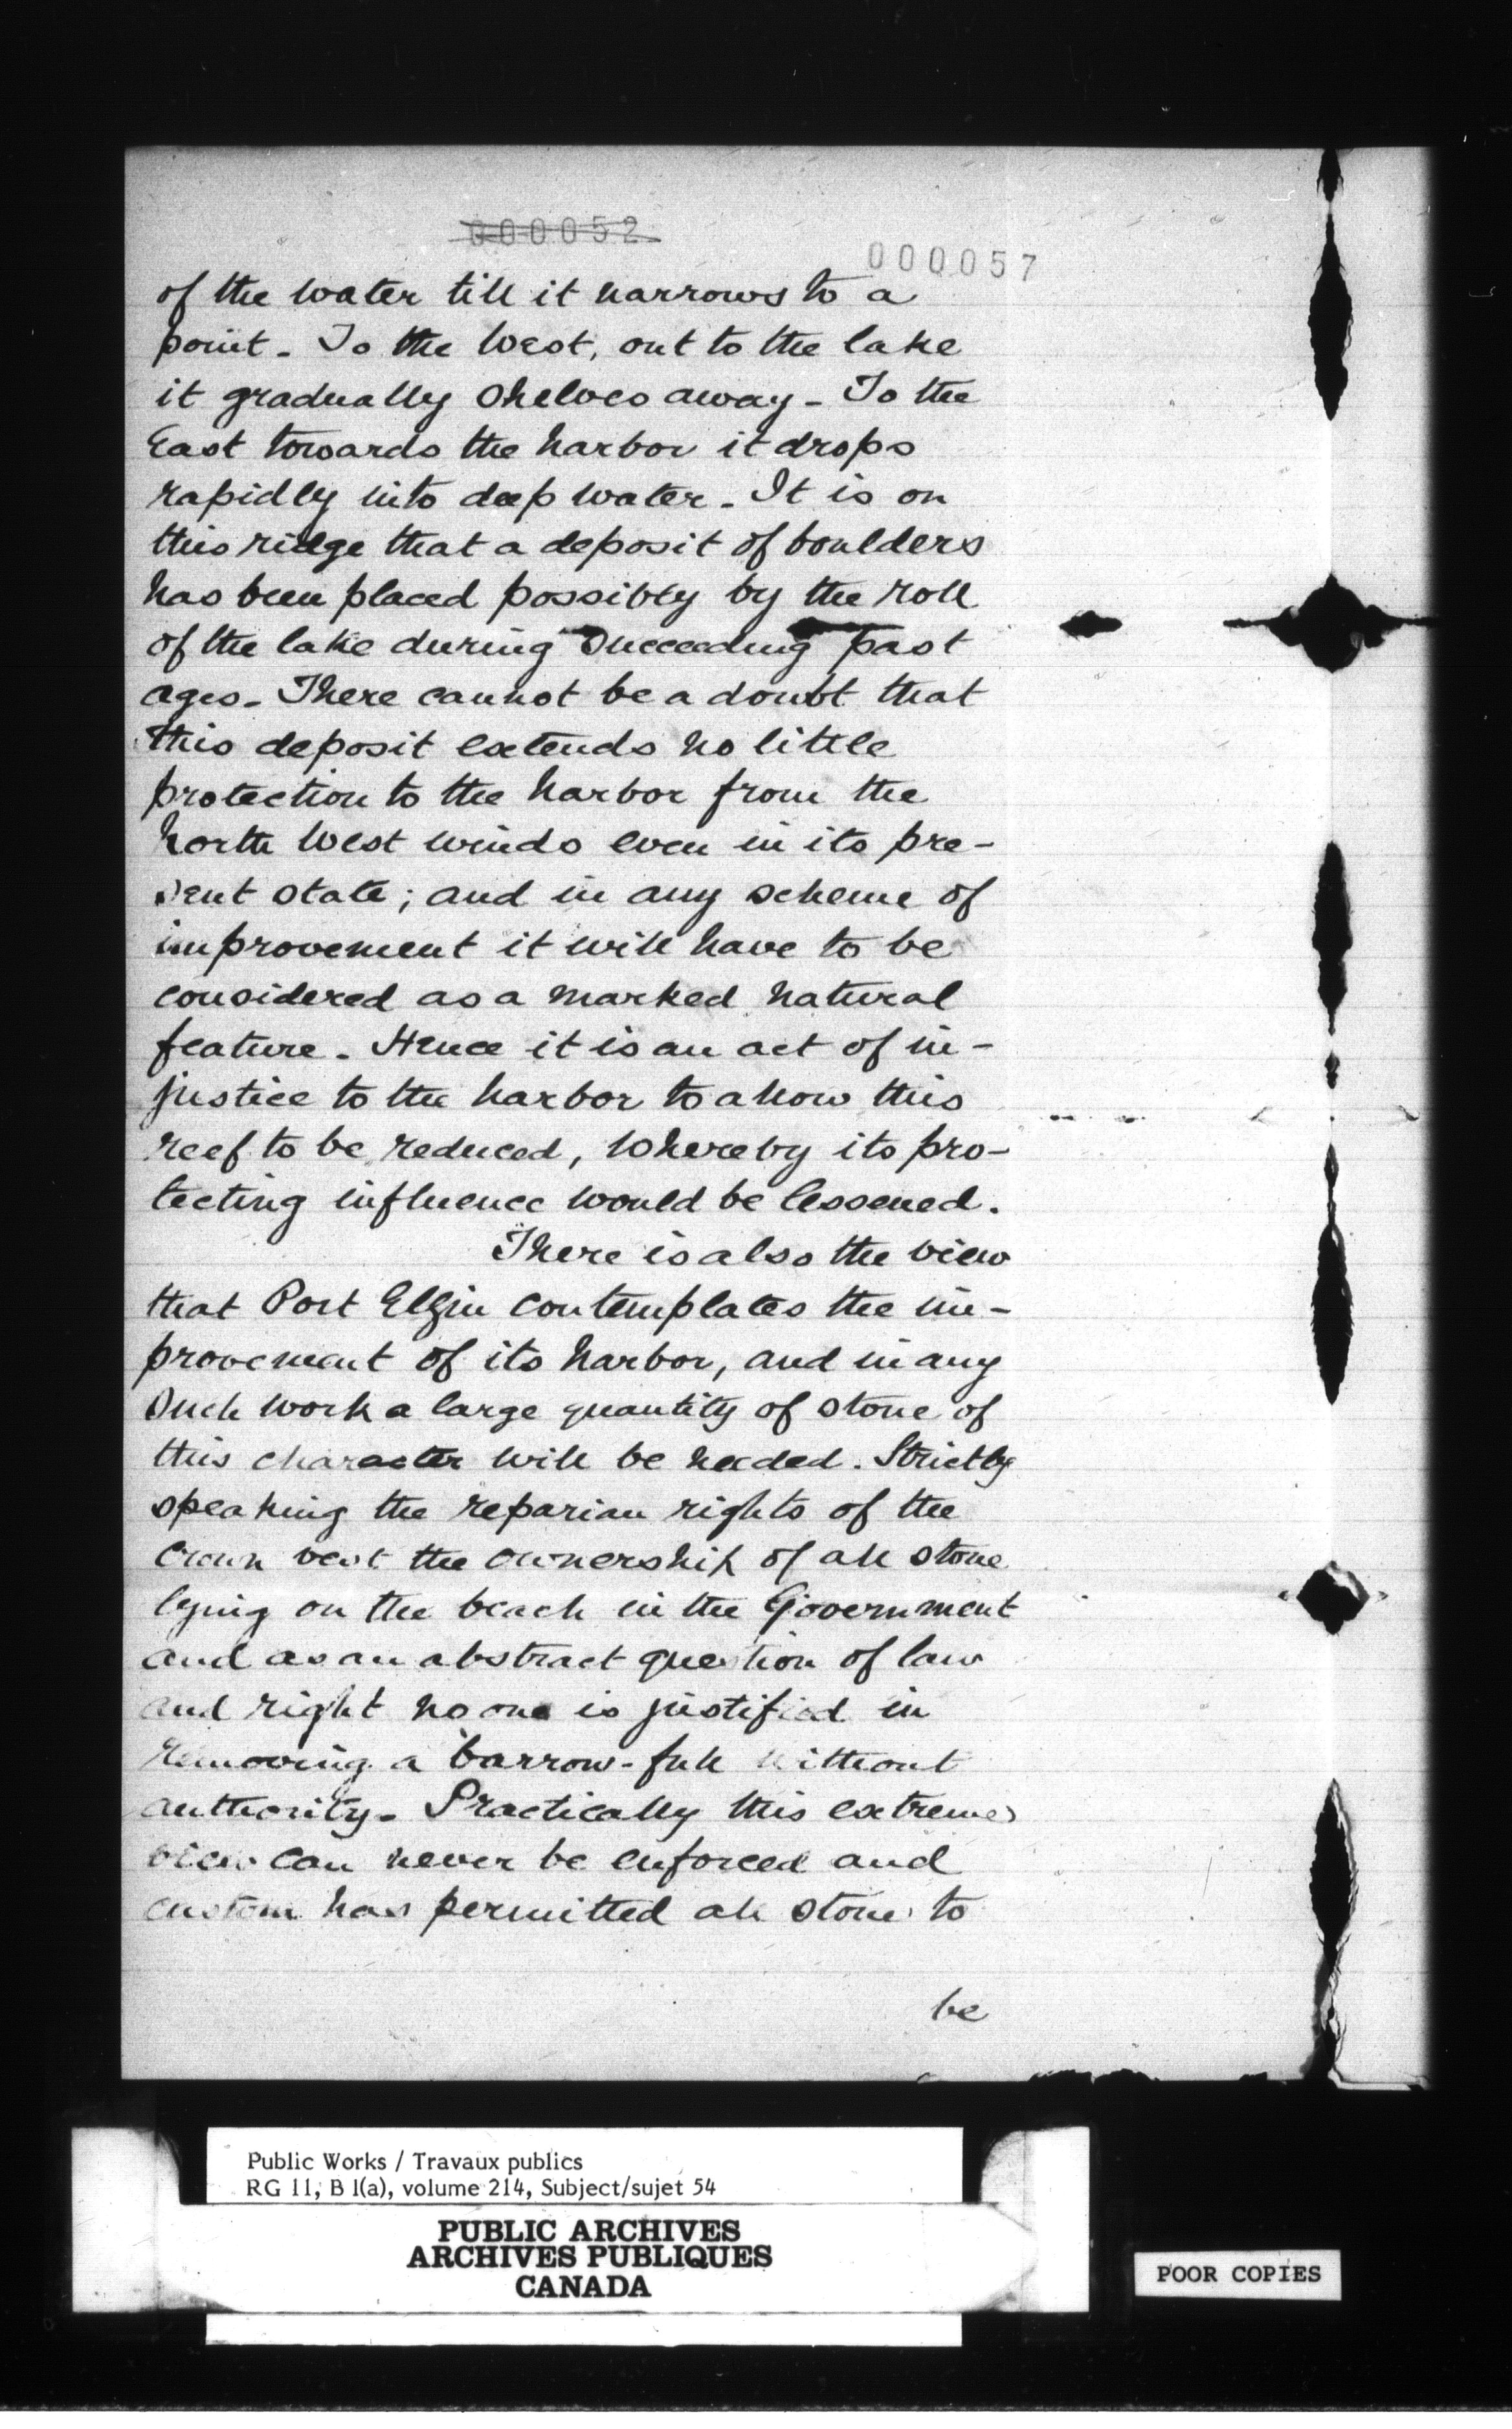 000052
000057
of the water till it narrows to a
point. To the West, out to the lake
it gradually shelves away. To the
East towards the harbor it drops
rapidly into deep water. It is on
this ridge that a deposit of boulders
has been placed possibly by the roll
of the lake during succeeding past
ages. There cannot be a doubt that
this deposit extends no little
protection to the harbor from the
North West winds even in its pre-
sent state; and in any scheme of
improvement it will have to be
considered as a marked natural
feature. Hence it is an act of in-
justice to the harbor to allow this
reef to be reduced, whereby its pro-
tecting influence would be lessened.
There is also the view
that Port Elgin contemplates the im-
provement of its harbor, and in any
such work a large quantity of stone of
this character will be needed. Strictly
speaking the reparian rights of the
Crown vest the ownership of all stone
lying on the beach in the Government
and as an abstract question of law
and right no one is justified in
removing a barrow-full without
authority. Practically this extreme
view can never be enforced and
custom has permitted all stone to
be
Public Works / Travaux publics
RG 11, B 1(a), volume 214, Subject/sujet 54
PUBLIC ARCHIVES
ARCHIVES PUBLIQUES
CANADA
POOR COPIES